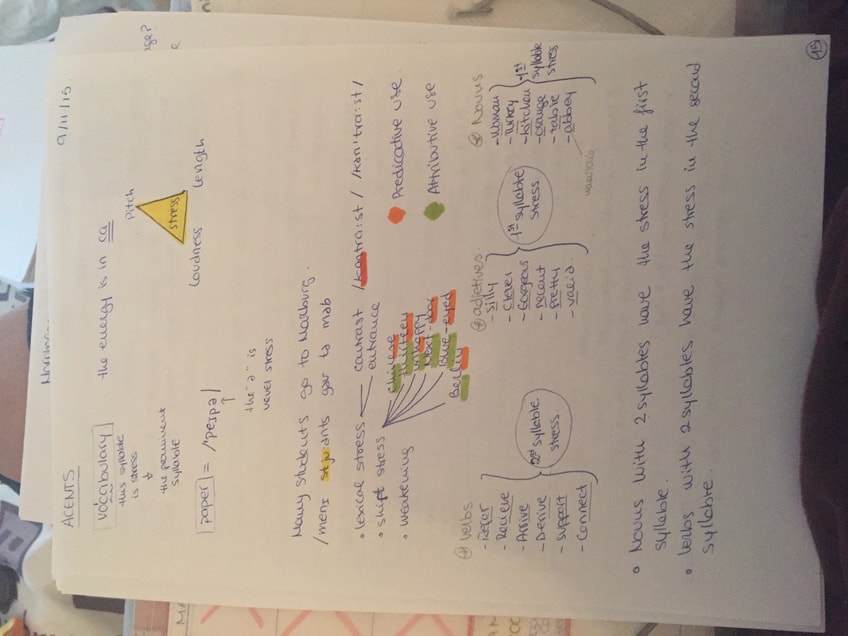 ACENTS
9/11/15
vocabulary
the energy is in ca
this syllable
is stress
the permanent
syllable
Pitch
stress
Loudness
Length
paper = /'peɪpə/
the "ə" is
never stress
Many students go to Marburg.
/menɪ stju:dnts gəʊ tə mɑb
• lexical stress
contrast /kɒntrɑ:st/ /kən'trɑ:st/
entrance
• shift stress
Chinese
thirteen
unhappy
next-door
Blue-eyed
Berlin
• weakening
Predicative use.
Attributive use
verbs
- Refer
- Receive
- Arrive
- Derive
- Support
- Connect
2nd syllable
stress
adjetives
- silly
- Clever
- Gorgeous
- Decent
- Pretty
- Valid
1st syllable
stress
Nouns
- Woman
- Turkey
- kitchen
- orange
- table
- abbey
1st
syllable
stress
• Nouns with 2 syllables have the stress in the first
syllable.
• Verbs with 2 syllables, have the stress in the second
syllable.
15